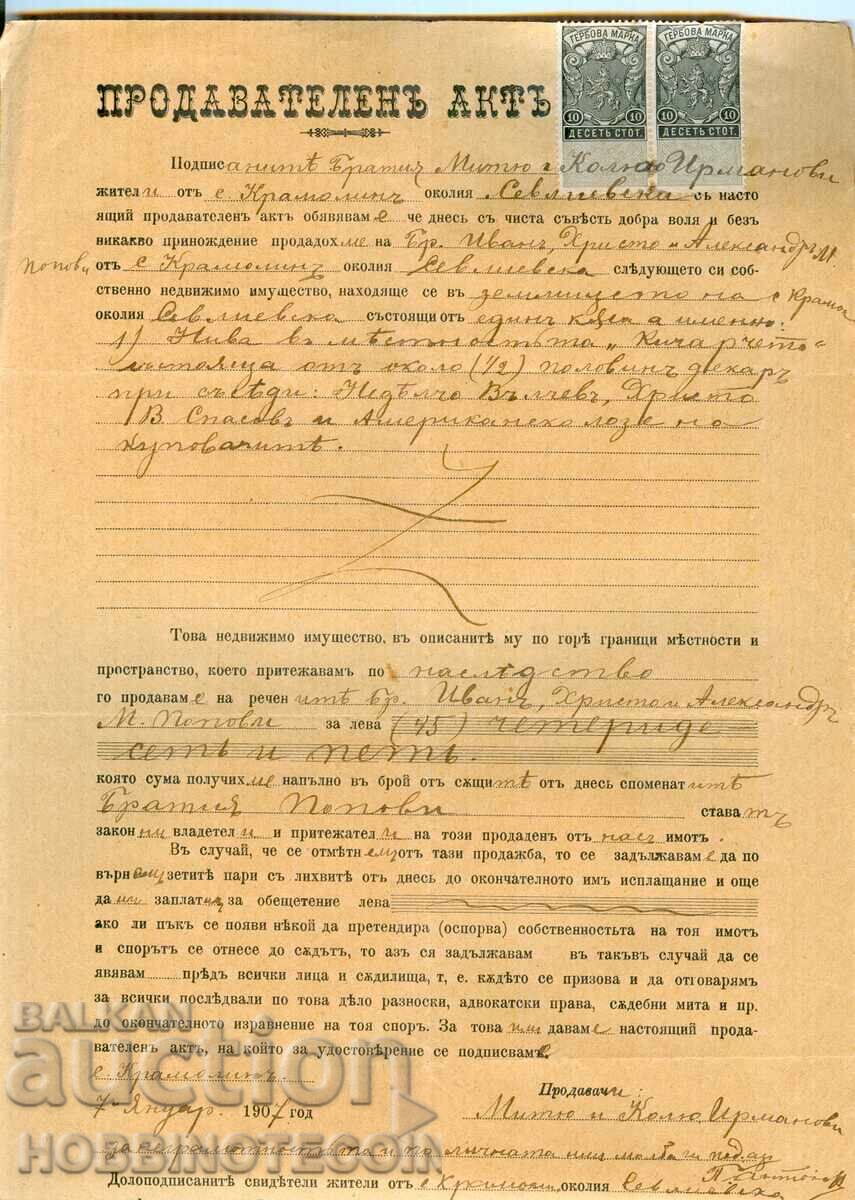 ГЕРБОВА МАРКА ГЕРБОВА МАРКА
10 10 10 10
ДЕСЕТЬ СТОТ. ДЕСЕТЬ СТОТ.
ПРОДАВАТЕЛЕНЪ АКТЪ
Подписанитѣ Братия Митю и Колю Ирманови
жители отъ с. Крамолинъ околия Севлиевска съ насто
ящий продавателенъ актъ обявяваме че днесь съ чиста съвѣсть добра воля и безъ
никакво принождение продадохме на Бр. Иванъ, Христо и Александръ М.
Попови отъ с. Крамолинъ околия Севлиевска слѣдующето си соб-
ственно недвижимо имущество, находяще се въ землището на с. Крамол
околия Севлиевска състоящи отъ единъ къса а именно:
1) Нива въ мѣстностьта „Кичарчето"
състояща отъ около (1/2) половинъ декаръ
при съсѣди: Недѣлчо Вълчевъ, Христо
В. Спасовъ и Американско лозе на
купувачитѣ.
Това недвижимо имущество, въ описанитѣ му по горѣ граници мѣстности и
пространство, което притежавамъ по наслѣдство
го продаваме на реченитѣ Бр. Иванъ, Христо и Александръ
М. Попови за лева (45) четериде
сеть и петь.
която сума получихме напълно въ брой отъ сѫщитѣ отъ днесь споменатитѣ
Братия Попови стават
законни владетели и притежатели на този продаденъ отъ насъ имотъ.
Въ случай, че се отмѣтнемъ отъ тази продажба, то се задължаваме да по
върнемъ зетитѣ пари съ лихвитѣ отъ днесь до окончателното имъ исплащание и още
да им заплатим за обещетение лева
ако ли пъкъ се появи нѣкой да претендира (оспорва) собственностьта на тоя имотъ
и спорътъ се отнесе до сѫдътъ, то азъ ся задължавам въ такъвъ случай да се
явявам предъ всички лица и сѫдилища, т, е. кѫдето се призова и да отговарямъ
за всички послѣдвали по това дѣло разноски, адвокатски права, сѫдебни мита и пр.
до окончателното изравнение на тоя споръ. За това им даваме настоящий прода-
вателенъ актъ, на който за удостовѣрение се подписваме.
с. Крамолинъ
7й Януар. 1907 год
Продавачи:
Митю и Колю Ирманови
за неграмотностьта и по личната им молба ги подп.
П. Антонов
Долоподписанитѣ свидѣтели жители отъ с. околия Севлиевска
BALKAN
auction
HOBBINOTECON